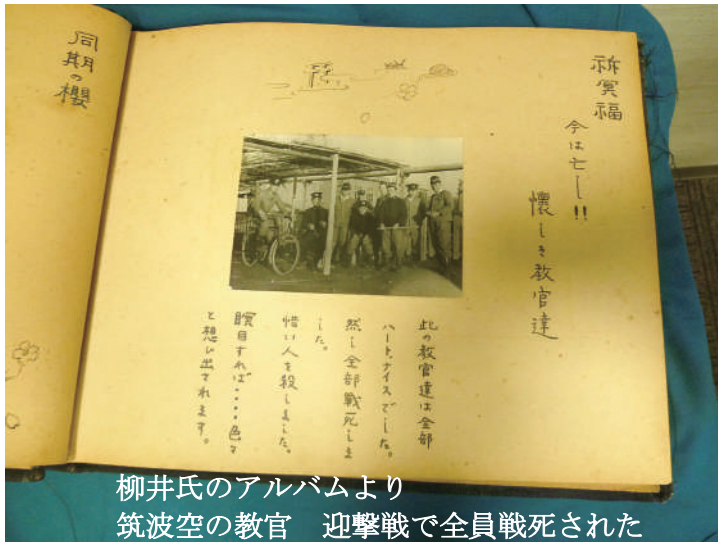 同期の櫻
祈冥福
今は亡し!!
懐しき教官達
此の教官達は全部
ハートナイスでした。
然し全部戦死しま
した。
惜い人を殺しました。
瞑目すれば・・・・色々
と想い出されます。
柳井氏のアルバムより
筑波空の教官　迎撃戦で全員戦死された